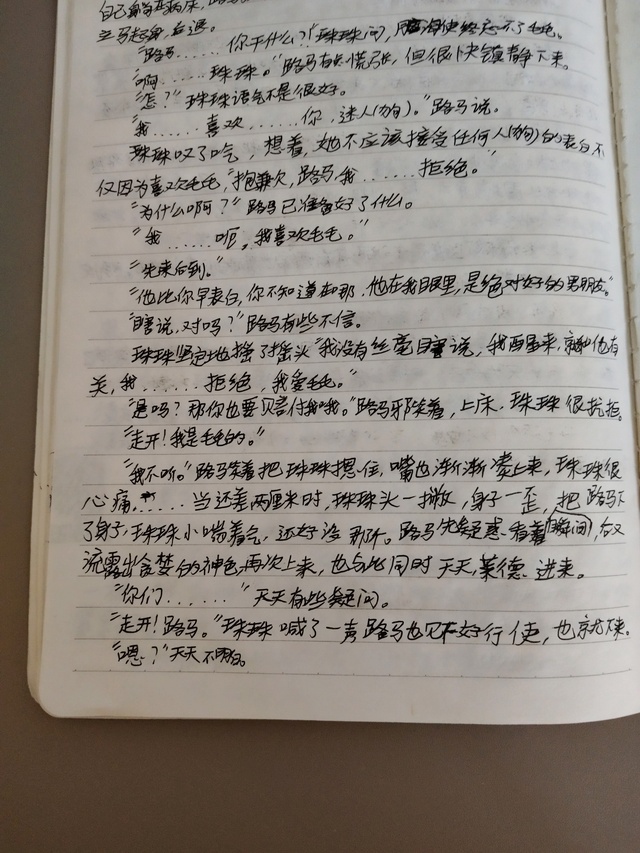 自己
立马起身后退。
“路马……你干什么?!”珠珠问,用始终忘不了毛毛。
“啊……珠珠。”路马有些慌张,但很快镇静下来。
“怎?”珠珠语气不是很好。
“我……喜欢……你,迷人(狗)。”路马说。
珠珠叹了吃,想着,她不应该接受任何人(狗)的表白,不
仅因为喜欢毛毛,“抱兼欠,路马,我……拒绝。”
“为什么啊?”路马已准备好了什么。
“我……呃,我喜欢毛毛。”
“先来后到。”
“他比你早表白,你不知道在那,他在我眼里,是绝对好的男朋友。”
“瞎说,对吗?”路马有些不信。
珠珠坚定地摇了摇头“我没有丝毫瞎说,我醒来,就和他有
关,我……拒绝,我爱毛毛。”
“是吗?那你也要赔付我。”路马邪笑着,上床,珠珠很抗拒。
“走开!我是毛毛的。”
“我不听。”路马笑着把珠珠摁住,嘴也渐渐凑上来,珠珠很
心痛,……当还差两厘米时,珠珠头一撇,身子一歪,把路马下
了身子,珠珠小喘着气,还好没那个。路马先疑惑看着(瞬间),but又
流露出贪婪的神色,再次上来,也与此同时天天,莱德进来。
“你们……”天天有些疑问。
“走开!路马。”珠珠喊了一声路马也见不好行使,也就下来。
“嗯?”天天不明白。